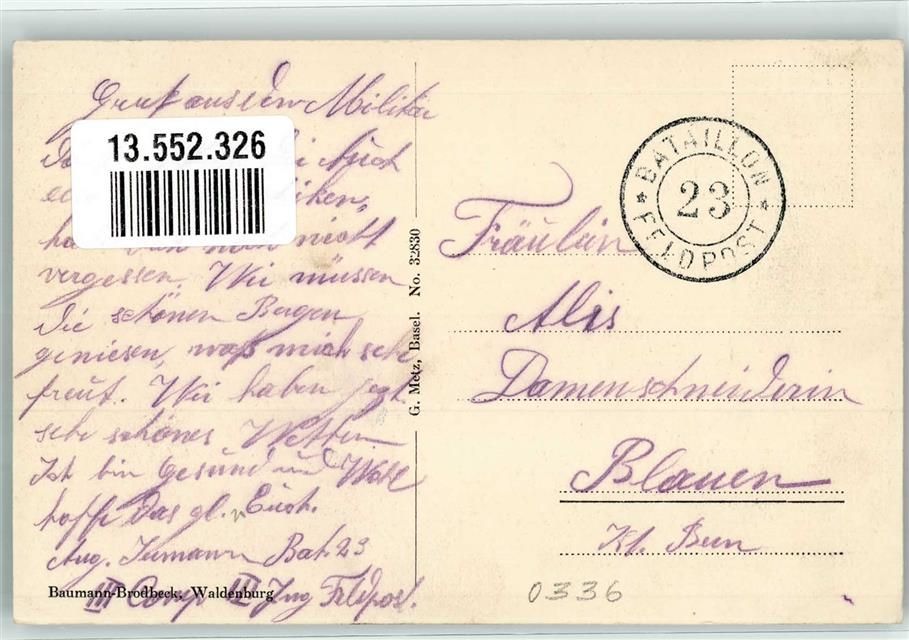 Gruß aus dem Militär
13.552.326
Auch
nicht
vergessen. Wir müssen
die schönen Bergen
geniesen, waß mich sehr
freut. Wir haben jezt
sehr schönes Wetter.
Ich bin Gesund und Wohl
hoffe das gl. v. Euch.
Aug. Bat. 23
III Comp III Zug Feldpost.
Baumann-Brodbeck, Waldenburg
G. Metz, Basel. No. 32830
BATAILLON
23
FELDPOST
Fräulein
Alis
Damenschneiderin
Blauen
Kt. Bern
0336